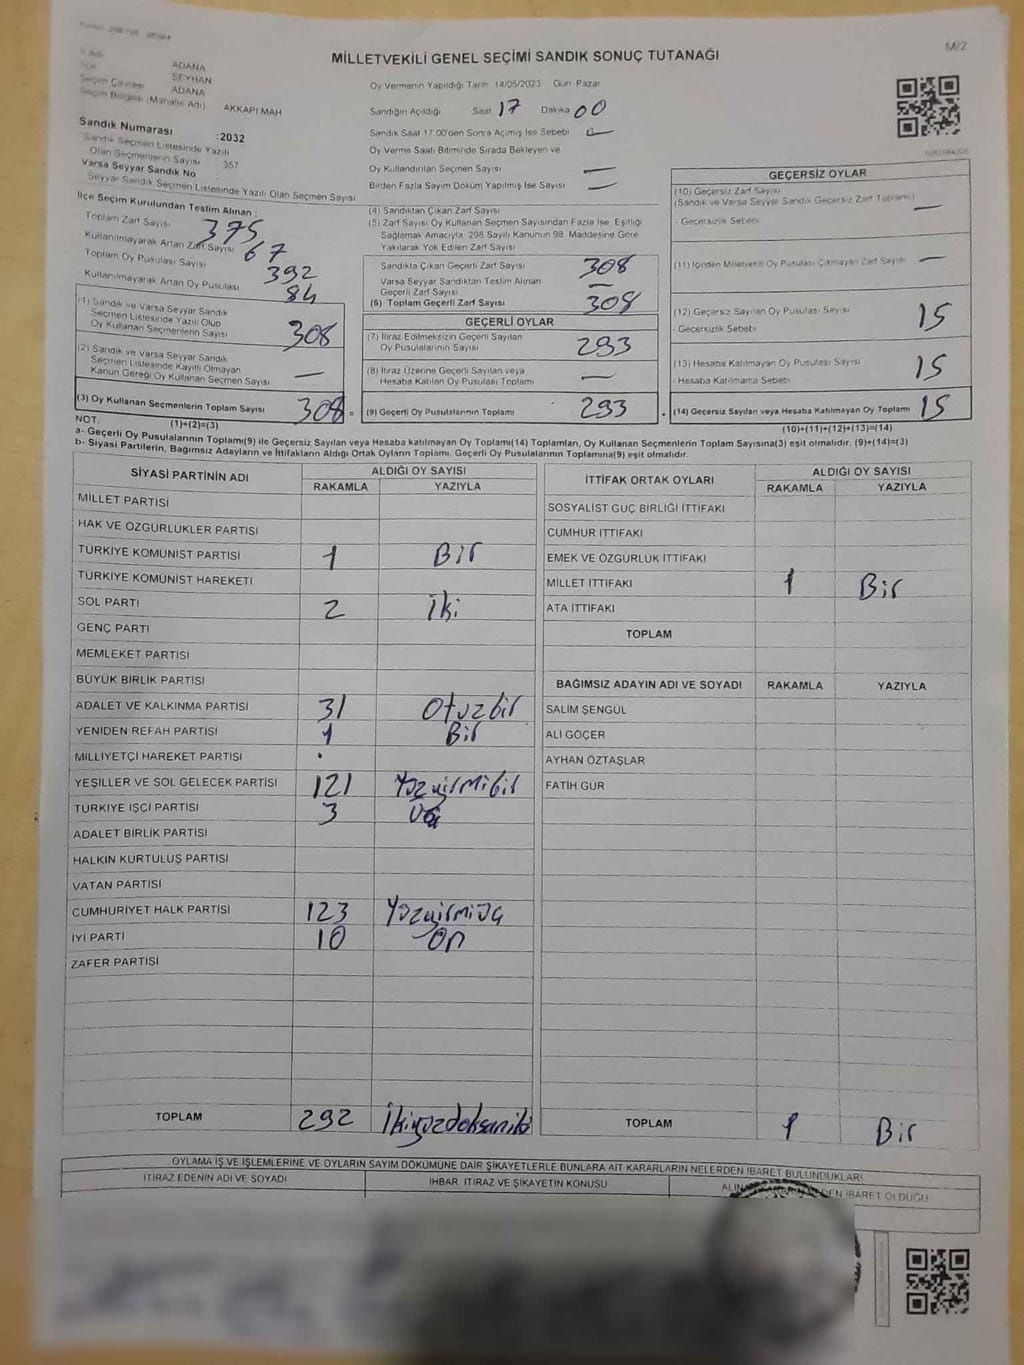 MİLLETVEKİLİ GENEL SEÇİMİ SANDIK SONUÇ TUTANAĞI
M/2
İl Adı ADANA
İlçe SEYHAN
Seçim Çevresi ADANA
Seçim Bölgesi (Mahalle Adı) AKKAPI MAH
Sandık Numarası :2032
Sandık Seçmen Listesinde Yazılı
Olan Seçmenlerin Sayısı 357
Varsa Seyyar Sandık No
Seyyar Sandık Seçmen Listesinde Yazılı Olan Seçmen Sayısı
Oy Vermenin Yapıldığı Tarih 14/05/2023 Gün Pazar
Sandığın Açıldığı Saat 17 Dakika 00
Sandık Saat 17.00'den Sonra Açılmış İse Sebebi
Oy Verme Saati Bitiminde Sırada Bekleyen ve
Oy Kullandırılan Seçmen Sayısı —
Birden Fazla Sayım Döküm Yapılmış İse Sayısı —
İlçe Seçim Kurulundan Teslim Alınan :
Toplam Zarf Sayısı 375
Kullanılmayarak Artan Zarf Sayısı 67
Toplam Oy Pusulası Sayısı 392
Kullanılmayarak Artan Oy Pusulası 84
(1) Sandık ve Varsa Seyyar Sandık
Seçmen Listesinde Yazılı Olup
Oy Kullanan Seçmenlerin Sayısı 308
(2) Sandık ve Varsa Seyyar Sandık
Seçmen Listesinde Kayıtlı Olmayan
Kanun Gereği Oy Kullanan Seçmen Sayısı —
(3) Oy Kullanan Seçmenlerin Toplam Sayısı 308 =
(1)+(2)=(3)
(4) Sandıktan Çıkan Zarf Sayısı
(5) Zarf Sayısı Oy Kullanan Seçmen Sayısından Fazla İse, Eşitliği
Sağlamak Amacıyla, 298 Sayılı Kanunun 98. Maddesine Göre
Yakılarak Yok Edilen Zarf Sayısı
Sandıkta Çıkan Geçerli Zarf Sayısı 308
Varsa Seyyar Sandıktan Teslim Alınan
Geçerli Zarf Sayısı —
(6) Toplam Geçerli Zarf Sayısı 308
GEÇERLİ OYLAR
(7) İtiraz Edilmeksizin Geçerli Sayılan
Oy Pusulalarının Sayısı 293
(8) İtiraz Üzerine Geçerli Sayılan veya
Hesaba Katılan Oy Pusulası Toplamı —
(9) Geçerli Oy Pusulalarının Toplamı 293
GEÇERSİZ OYLAR
(10) Geçersiz Zarf Sayısı
(Sandık ve Varsa Seyyar Sandık Geçersiz Zarf Toplamı) —
- Geçersizlik Sebebi
(11) İçinden Milletvekili Oy Pusulası Çıkmayan Zarf Sayısı —
(12) Geçersiz Sayılan Oy Pusulası Sayısı 15
- Geçersizlik Sebebi
(13) Hesaba Katılmayan Oy Pusulası Sayısı 15
- Hesaba Katılmama Sebebi
(14) Geçersiz Sayılan veya Hesaba Katılmayan Oy Toplamı 15
(10)+(11)+(12)+(13)=(14)
NOT:
a- Geçerli Oy Pusulalarının Toplamı(9) ile Geçersiz Sayılan veya Hesaba katılmayan Oy Toplamı(14) Toplamları, Oy Kullanan Seçmenlerin Toplam Sayısına(3) eşit olmalıdır. (9)+(14)=(3)
b- Siyasi Partilerin, Bağımsız Adayların ve İttifakların Aldığı Ortak Oyların Toplamı, Geçerli Oy Pusulalarının Toplamına(9) eşit olmalıdır.
SİYASİ PARTİNİN ADI ALDIĞI OY SAYISI
RAKAMLA YAZIYLA
MİLLET PARTİSİ
HAK VE ÖZGÜRLÜKLER PARTİSİ
TÜRKİYE KOMÜNİST PARTİSİ 1 Bir
TÜRKİYE KOMÜNİST HAREKETİ
SOL PARTİ 2 İki
GENÇ PARTİ
MEMLEKET PARTİSİ
BÜYÜK BİRLİK PARTİSİ
ADALET VE KALKINMA PARTİSİ 31 Otuzbir
YENİDEN REFAH PARTİSİ 1 Bir
MİLLİYETÇİ HAREKET PARTİSİ
YEŞİLLER VE SOL GELECEK PARTİSİ 121 Yüzyirmibir
TÜRKİYE İŞÇİ PARTİSİ 3 Üç
ADALET BİRLİK PARTİSİ
HALKIN KURTULUŞ PARTİSİ
VATAN PARTİSİ
CUMHURİYET HALK PARTİSİ 123 Yüzyirmiüç
İYİ PARTİ 10 On
ZAFER PARTİSİ
TOPLAM 292 İkiyüzdoksaniki
İTTİFAK ORTAK OYLARI ALDIĞI OY SAYISI
RAKAMLA YAZIYLA
SOSYALİST GÜÇ BİRLİĞİ İTTİFAKI
CUMHUR İTTİFAKI
EMEK VE ÖZGÜRLÜK İTTİFAKI
MİLLET İTTİFAKI 1 Bir
ATA İTTİFAKI
TOPLAM
BAĞIMSIZ ADAYIN ADI VE SOYADI RAKAMLA YAZIYLA
SALİM ŞENGÜL
ALİ GÖÇER
AYHAN ÖZTAŞLAR
FATİH GÜR
TOPLAM 1 Bir
OYLAMA İŞ VE İŞLEMLERİNE VE OYLARIN SAYIM DÖKÜMÜNE DAİR ŞİKAYETLERLE BUNLARA AİT KARARLARIN NELERDEN İBARET BULUNDUKLARI
İTİRAZ EDENİN ADI VE SOYADI İHBAR İTİRAZ VE ŞİKAYETİN KONUSU
İBARET OLDUĞU